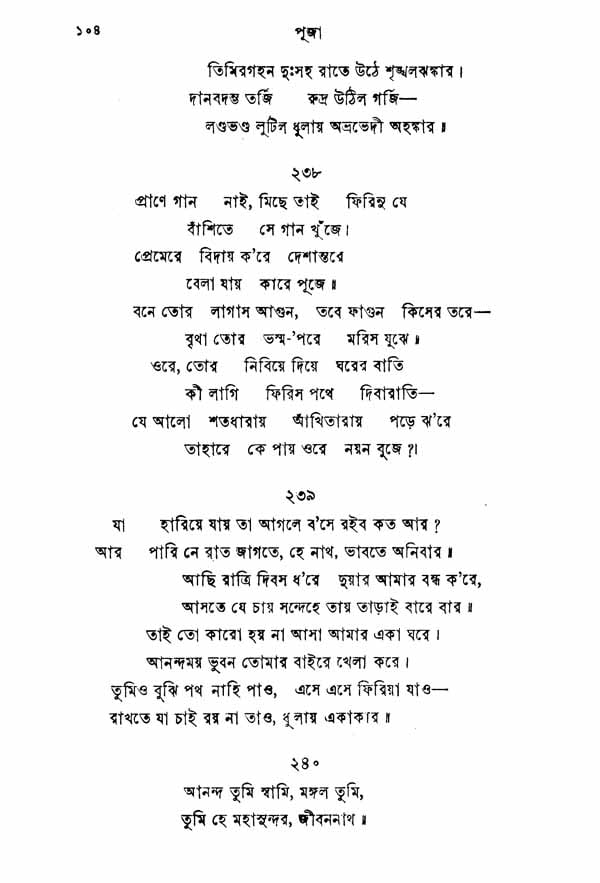 ১০৪ পূজা
তিমিরগহন দুঃসহ রাতে উঠে শৃঙ্খলঝঙ্কার।
দানবদম্ভ তর্জি রুদ্র উঠিল গর্জি—
লণ্ডভণ্ড লুটিল ধুলায় অভ্রভেদী অহঙ্কার॥
২৩৮
প্রাণে গান নাই, মিছে তাই ফিরিনু যে
বাঁশিতে সে গান খুঁজে।
প্রেমেরে বিদায় ক'রে দেশান্তরে
বেলা যায় কারে পূজে॥
বনে তোর লাগাস আগুন, তবে ফাগুন কিসের তরে—
বৃথা তোর ভস্ম-'পরে মরিস যুঝে॥
ওরে, তোর নিবিয়ে দিয়ে ঘরের বাতি
কী লাগি ফিরিস পথে দিবারাতি—
যে আলো শতধারায় আঁখিতারায় পড়ে ঝ'রে
তাহারে কে পায় ওরে নয়ন বুজে?।
২৩৯
যা হারিয়ে যায় তা আগলে ব'সে রইব কত আর?
আর পারি নে রাত জাগতে, হে নাথ, ভাবতে অনিবার॥
আছি রাত্রি দিবস ধ'রে দুয়ার আমার বন্ধ ক'রে,
আসতে যে চায় সন্দেহে তায় তাড়াই বারে বার॥
তাই তো কারো হয় না আসা আমার একা ঘরে।
আনন্দময় ভুবন তোমার বাইরে খেলা করে।
তুমিও বুঝি পথ নাহি পাও, এসে এসে ফিরিয়া যাও—
রাখতে যা চাই রয় না তাও, ধুলায় একাকার॥
২৪০
আনন্দ তুমি স্বামি, মঙ্গল তুমি,
তুমি হে মহাসুন্দর, জীবননাথ॥